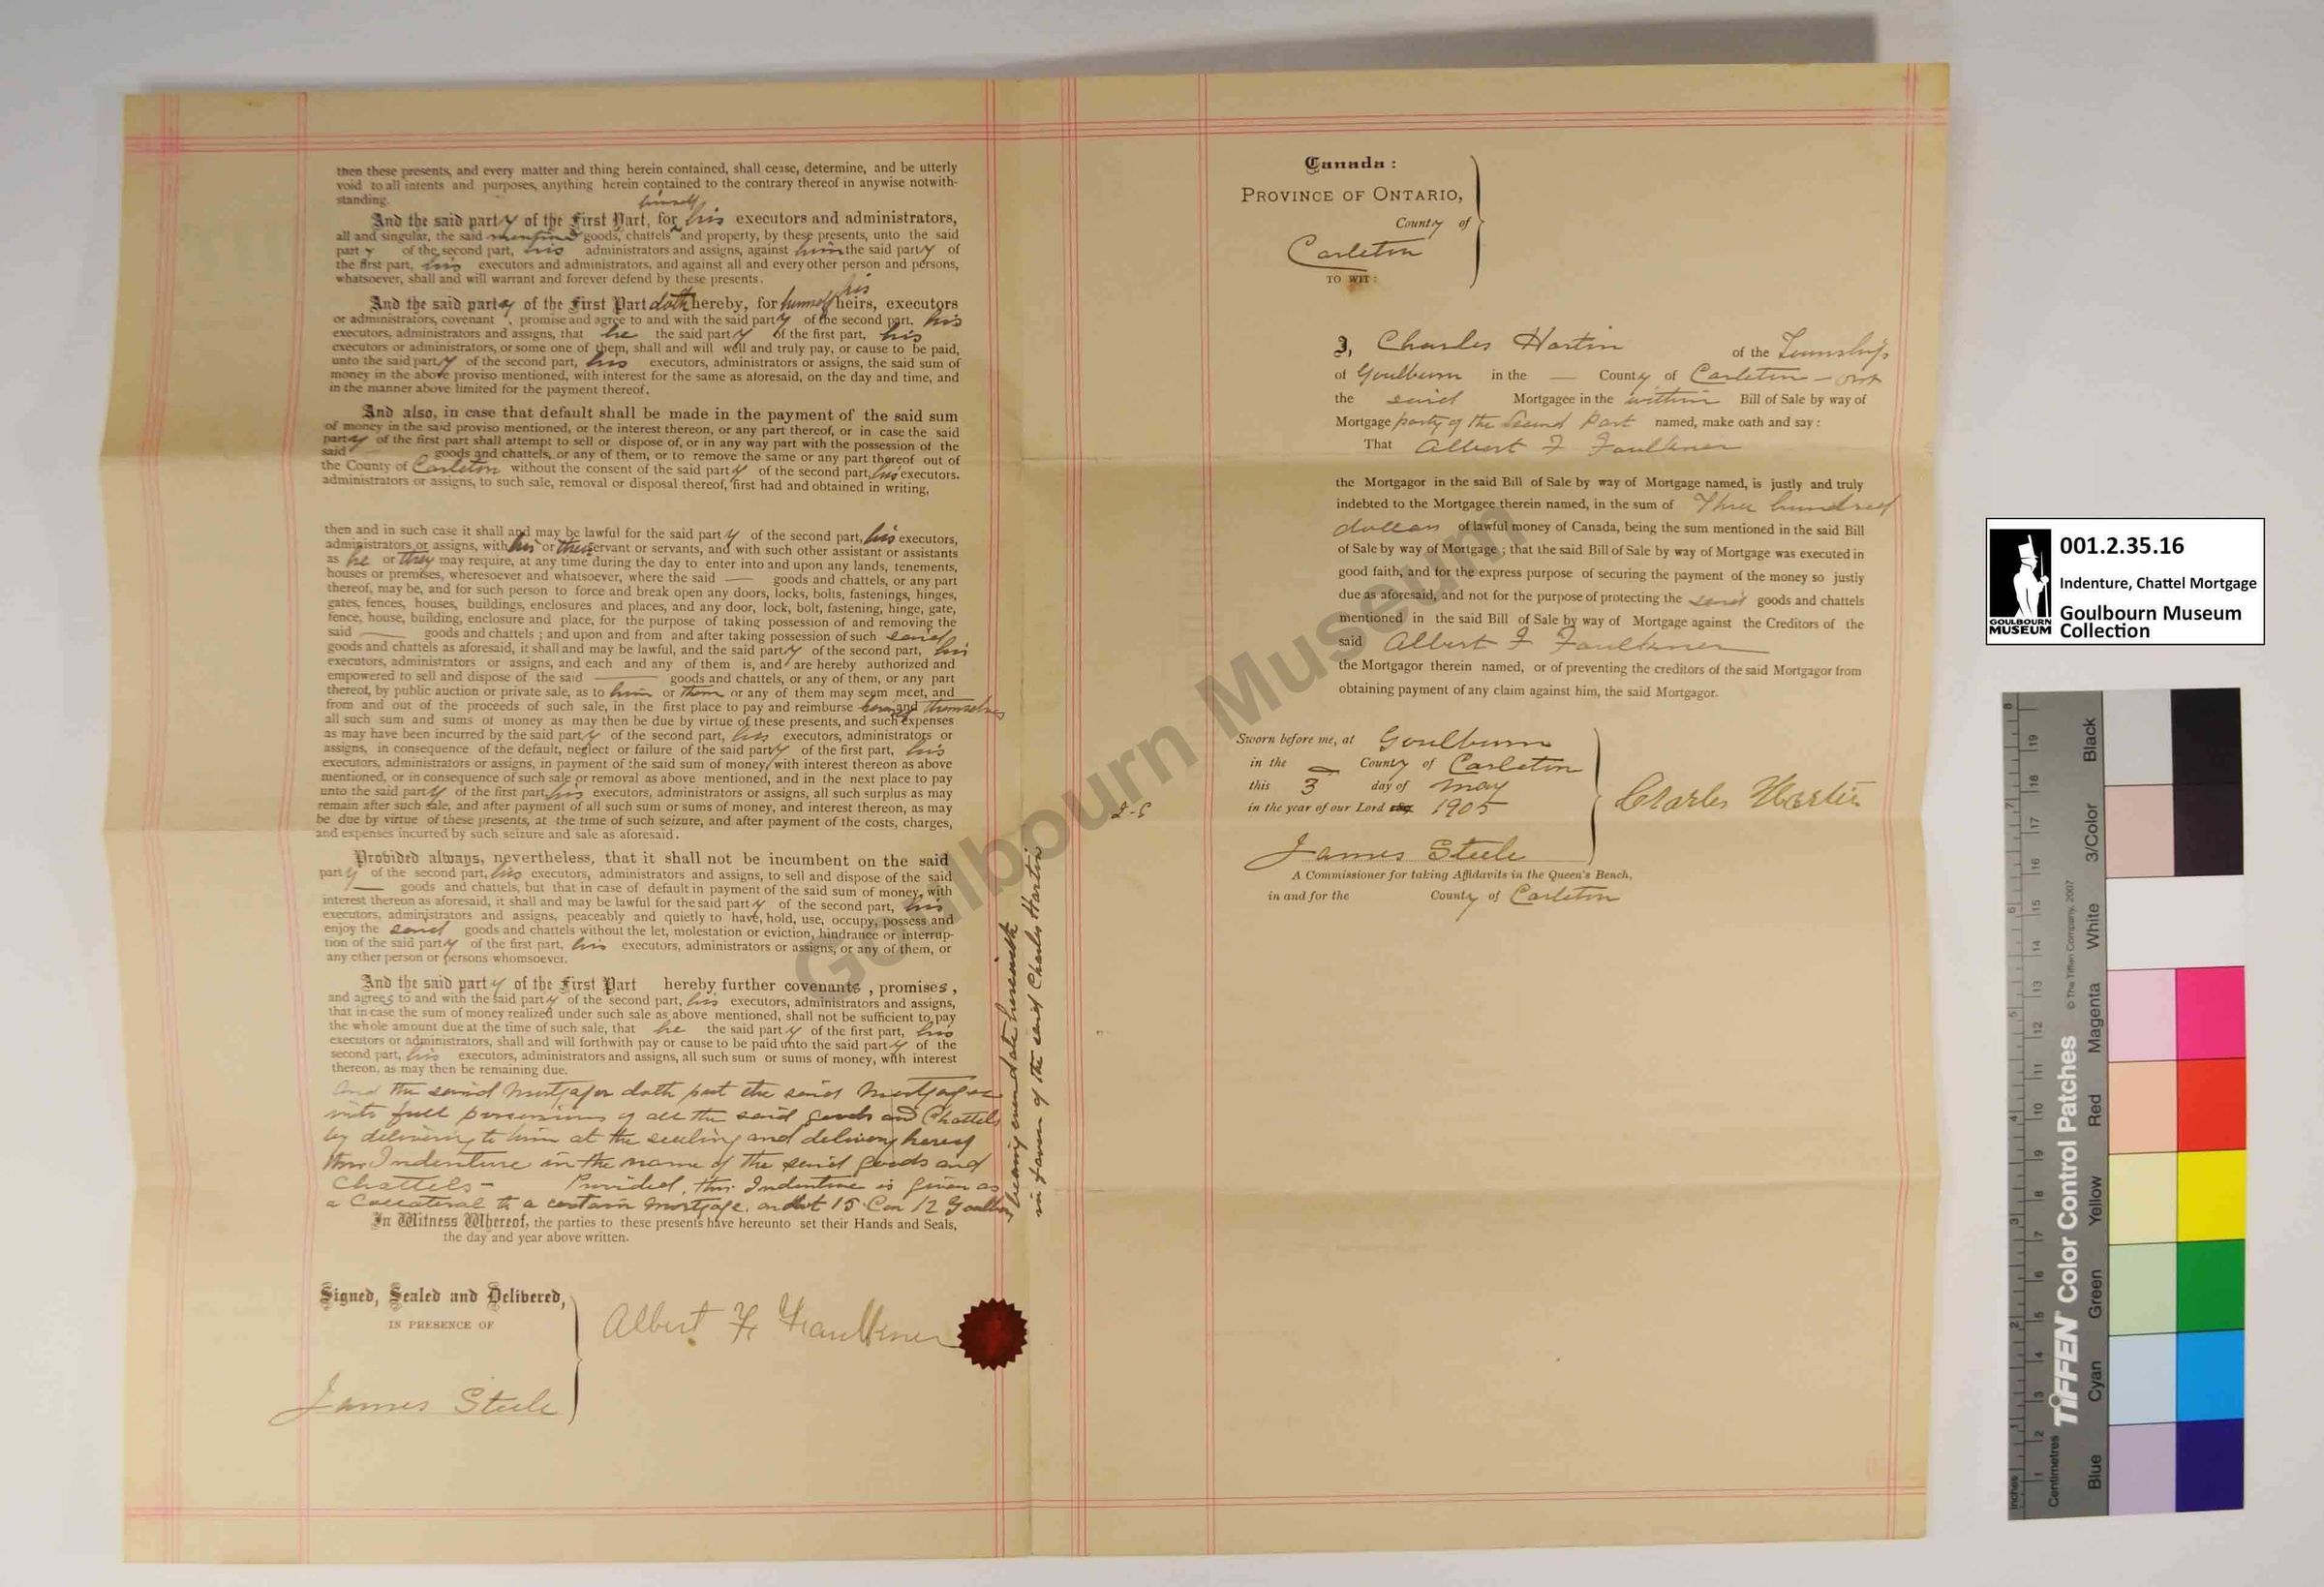 then these presents, and every matter and thing herein contained, shall cease, determine, and be utterly
void to all intents and purposes, anything herein contained to the contrary thereof in anywise notwith-
standing.
himself
And the said party of the First Part, for his executors and administrators,
all and singular, the said goods, chattels and property, by these presents, unto the said
party of the second part, his administrators and assigns, against him the said party of
the first part, his executors and administrators, and against all and every other person and persons,
whatsoever, shall and will warrant and forever defend by these presents.
his
And the said party of the First Part doth hereby, for himself heirs, executors
or administrators, covenant , promise and agree to and with the said party of the second part, his
executors, administrators and assigns, that he the said party of the first part, his
executors or administrators, or some one of them, shall and will well and truly pay, or cause to be paid,
unto the said party of the second part, his executors, administrators or assigns, the said sum of
money in the above proviso mentioned, with interest for the same as aforesaid, on the day and time, and
in the manner above limited for the payment thereof.
And also, in case that default shall be made in the payment of the said sum
of money in the said proviso mentioned, or the interest thereon, or any part thereof, or in case the said
party of the first part shall attempt to sell or dispose of, or in any way part with the possession of the
said goods and chattels, or any of them, or to remove the same or any part thereof out of
the County of Carleton without the consent of the said party of the second part, his executors.
administrators or assigns, to such sale, removal or disposal thereof, first had and obtained in writing,
then and in such case it shall and may be lawful for the said party of the second part, his executors,
administrators or assigns, with his or their servant or servants, and with such other assistant or assistants
as he or they may require, at any time during the day to enter into and upon any lands, tenements,
houses or premises, wheresoever and whatsoever, where the said — goods and chattels, or any part
thereof, may be, and for such person to force and break open any doors, locks, bolts, fastenings, hinges,
gates, fences, houses, buildings, enclosures and places, and any door, lock, bolt, fastening, hinge, gate,
fence, house, building, enclosure and place, for the purpose of taking possession of and removing the
said — goods and chattels ; and upon and from and after taking possession of such said
goods and chattels as aforesaid, it shall and may be lawful, and the said party of the second part, his
executors, administrators or assigns, and each and any of them is, and are hereby authorized and
empowered to sell and dispose of the said — goods and chattels, or any of them, or any part
thereof, by public auction or private sale, as to him or them or any of them may seem meet, and
from and out of the proceeds of such sale, in the first place to pay and reimburse and themselves
all such sum and sums of money as may then be due by virtue of these presents, and such expenses
as may have been incurred by the said party of the second part, his executors, administrators or
assigns, in consequence of the default, neglect or failure of the said party of the first part, his
executors, administrators or assigns, in payment of the said sum of money, with interest thereon as above
mentioned, or in consequence of such sale or removal as above mentioned, and in the next place to pay
unto the said party of the first part, his executors, administrators or assigns, all such surplus as may
remain after such sale, and after payment of all such sum or sums of money, and interest thereon, as may
be due by virtue of these presents, at the time of such seizure, and after payment of the costs, charges,
and expenses incurred by such seizure and sale as aforesaid.
Provided always, nevertheless, that it shall not be incumbent on the said
party of the second part, his executors, administrators and assigns, to sell and dispose of the said
— goods and chattels, but that in case of default in payment of the said sum of money, with
interest thereon as aforesaid, it shall and may be lawful for the said party of the second part, his
executors, administrators and assigns, peaceably and quietly to have, hold, use, occupy, possess and
enjoy the said goods and chattels without the let, molestation or eviction, hindrance or interrup-
tion of the said party of the first part, his executors, administrators or assigns, or any of them, or
any other person or persons whomsoever.
And the said party of the First Part hereby further covenants , promises ,
and agrees to and with the said party of the second part, his executors, administrators and assigns,
that in case the sum of money realized under such sale as above mentioned, shall not be sufficient to pay
the whole amount due at the time of such sale, that he the said party of the first part, his
executors or administrators, shall and will forthwith pay or cause to be paid unto the said party of the
second part, his executors, administrators and assigns, all such sum or sums of money, with interest
thereon, as may then be remaining due.
And the said Mortgagor doth put the said Mortgagee
into full possession of all the said goods and Chattels
by delivering to him at the sealing and delivery hereof
this Indenture in the name of the said goods and
Chattels - Provided, this Indenture is given as
a Collateral to a certain Mortgage, on Lot 15 Con 12 Goulburn
bearing even date herewith
in favour of the said Charles Hartin
In Witness Whereof, the parties to these presents have hereunto set their Hands and Seals,
the day and year above written.
Signed, Sealed and Delivered,
IN PRESENCE OF
Albert F Faulkner
James Steele
Canada :
PROVINCE OF ONTARIO,
County of
Carleton
TO WIT :
I, Charles Hartin of the Township
of Goulburn in the — County of Carleton
the said Mortgagee in the within Bill of Sale by way of
Mortgage party of the Second Part named, make oath and say :
That Albert F Faulkner
the Mortgagor in the said Bill of Sale by way of Mortgage named, is justly and truly
indebted to the Mortgagee therein named, in the sum of Three hundred
dollars of lawful money of Canada, being the sum mentioned in the said Bill
of Sale by way of Mortgage ; that the said Bill of Sale by way of Mortgage was executed in
good faith, and for the express purpose of securing the payment of the money so justly
due as aforesaid, and not for the purpose of protecting the said goods and chattels
mentioned in the said Bill of Sale by way of Mortgage against the Creditors of the
said Albert F Faulkner
the Mortgagor therein named, or of preventing the creditors of the said Mortgagor from
obtaining payment of any claim against him, the said Mortgagor.
Sworn before me, at Goulburn
in the — County of Carleton
this 3 day of May
in the year of our Lord 1905
Charles Hartin
James Steele
A Commissioner for taking Affidavits in the Queen's Bench,
in and for the County of Carleton
Goulbourn Museum
001.2.35.16
Indenture, Chattel Mortgage
Goulbourn Museum
Collection
GOULBOURN
MUSEUM
TIFFEN Color Control Patches
© The Tiffen Company, 2007
Inches
Centimetres
Blue
Cyan
Green
Yellow
Red
Magenta
White
3/Color
Black